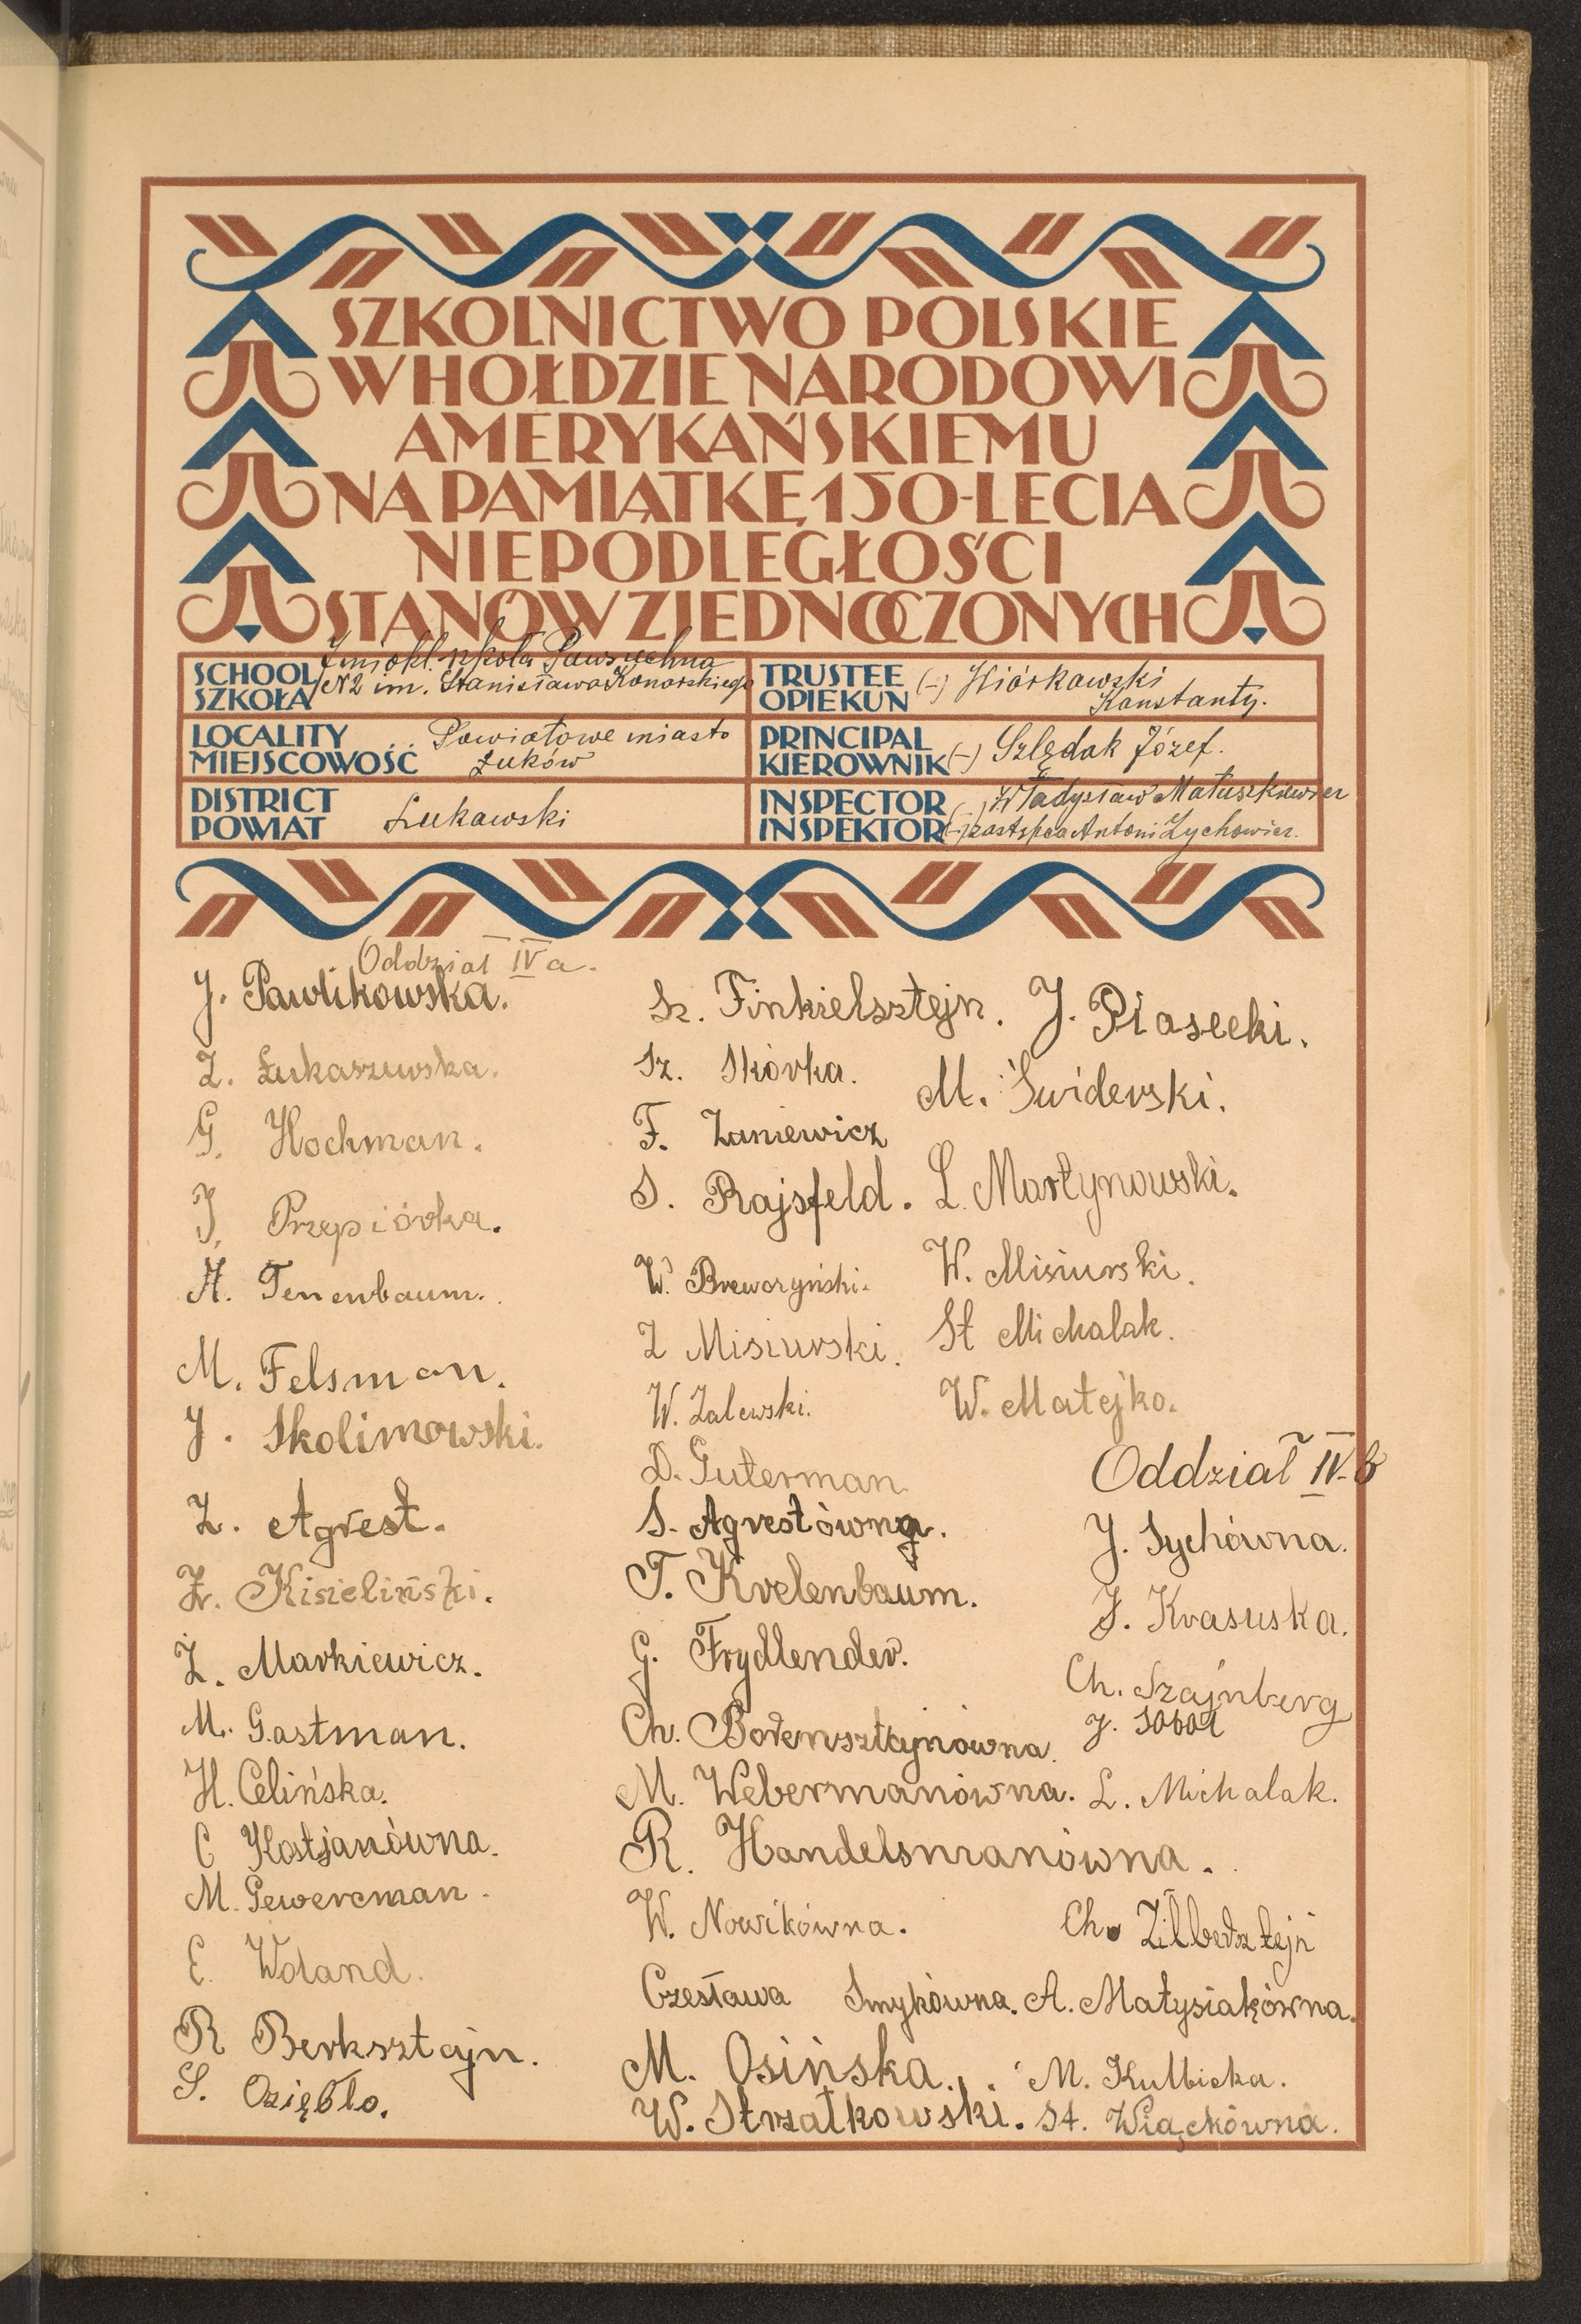 SZKOLNICTWO POLSKIE
W HOŁDZIE NARODOWI
AMERYKAŃSKIEMU
NA PAMIĄTKĘ 150-LECIA
NIEPODLEGŁOŚCI
STANÓW ZJEDNOCZONYCH
SCHOOL
SZKOŁA
7mio kl. szkoła Powszechna
N2 im. Stanisława Konarskiego
TRUSTEE
OPIEKUN
(-) Wiórkowski
Konstanty.
LOCALITY
MIEJSCOWOŚĆ
Powiatowe miasto
Łuków
PRINCIPAL
KIEROWNIK
(-) Szlędak Józef.
DISTRICT
POWIAT
Łukowski
INSPECTOR
INSPEKTOR
(-) Władysław Matuszkiewicz
(-) zastępca Antoni Zychowicz.
Oddział IV a.
J. Pawlikowska.
Z. Łukaszewska.
G. Hochman.
J. Przepiórka.
H. Tenenbaum.
M. Felsman.
J. Skolimowski.
Z. Agrest.
Z. Kisieliński.
Z. Markiewicz.
M. Gastman.
H. Celińska.
C Kostjanówna.
M. Gewercman.
E. Woland.
R Berksztajn.
S. Oziębło.
Sz. Finkielsztejn.
Sz. Skórka.
F. Zaniewicz
S. Rajsfeld.
W. Breworyński.
Z Misiurski.
W. Zalewski.
D. Guterman
S. Agrestówna.
T. Krelenbaum.
G. Frydlender.
Ch. Borensztajnówna.
M. Webermanówna.
R. Handelsmanówna.
W. Nowikówna.
Czesława Smykówna.
M. Osińska.
W. Strzałkowski.
J. Piasecki.
M. Świderski.
L. Martynowski.
W. Misiurski.
St Michalak.
W. Matejko.
Oddział IV-b
J. Sychówna.
J. Krasuska.
Ch. Szajnberg
J. Sobol
L. Michalak.
Ch. Zilbersztejn
A. Matysiakówna.
M. Kulbicka.
St. Wiąckówna.